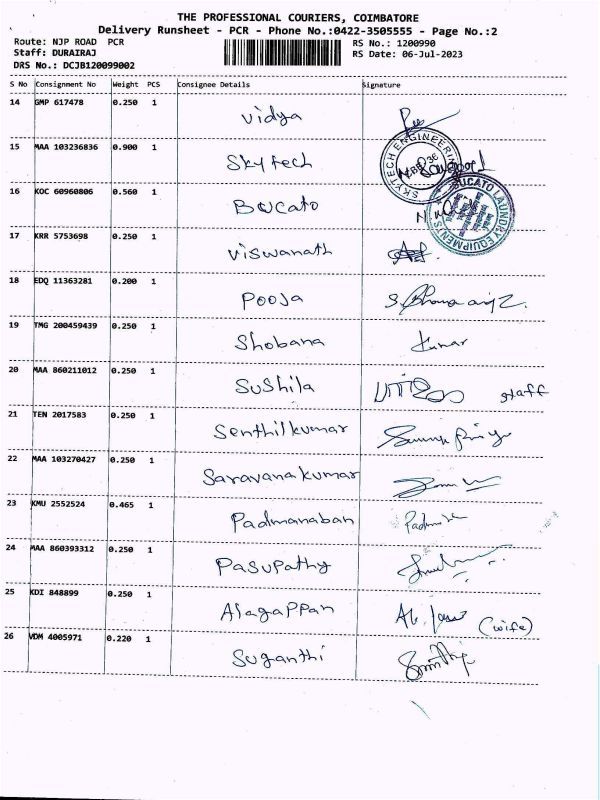 THE PROFESSIONAL COURIERS, COIMBATORE
Delivery Runsheet - PCR - Phone No.:0422-3505555 - Page No.:2
Route: NJP ROAD PCR
RS No.: 1200990
Staff: DURAIRAJ
RS Date: 06-Jul-2023
DRS No.: DCJB120099002
S No Consignment No Weight PCS Consignee Details Signature
14 GMP 617478 0.250 1 vidya
15 MAA 103236836 0.900 1 Skytech
SKYTECH ENGINEERING
16 KOC 60960806 0.560 1 Bucato
BUCATO LAUNDRY EQUIPMENTS
17 KRR 5753698 0.250 1 Viswanath
18 EDQ 11363281 0.200 1 Pooja
19 TMG 200459439 0.250 1 Shobana Kumar
20 MAA 860211012 0.250 1 Sushila staff
21 TEN 2017583 0.250 1 Senthilkumar
22 MAA 103270427 0.250 1 Saravanakumar
23 KMU 2552524 0.465 1 Padmanaban
24 MAA 860393312 0.250 1 Pasupathy
25 KDI 848899 0.250 1 Alagappan (wife)
26 VDM 4005971 0.220 1 Suganthi